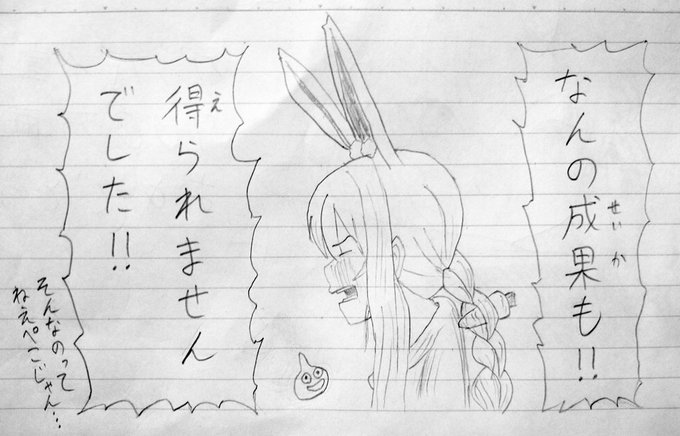 なんの成果も!!
せいか
得られません
え
でした!!
そんなのって
ねぇぺこじゃん…